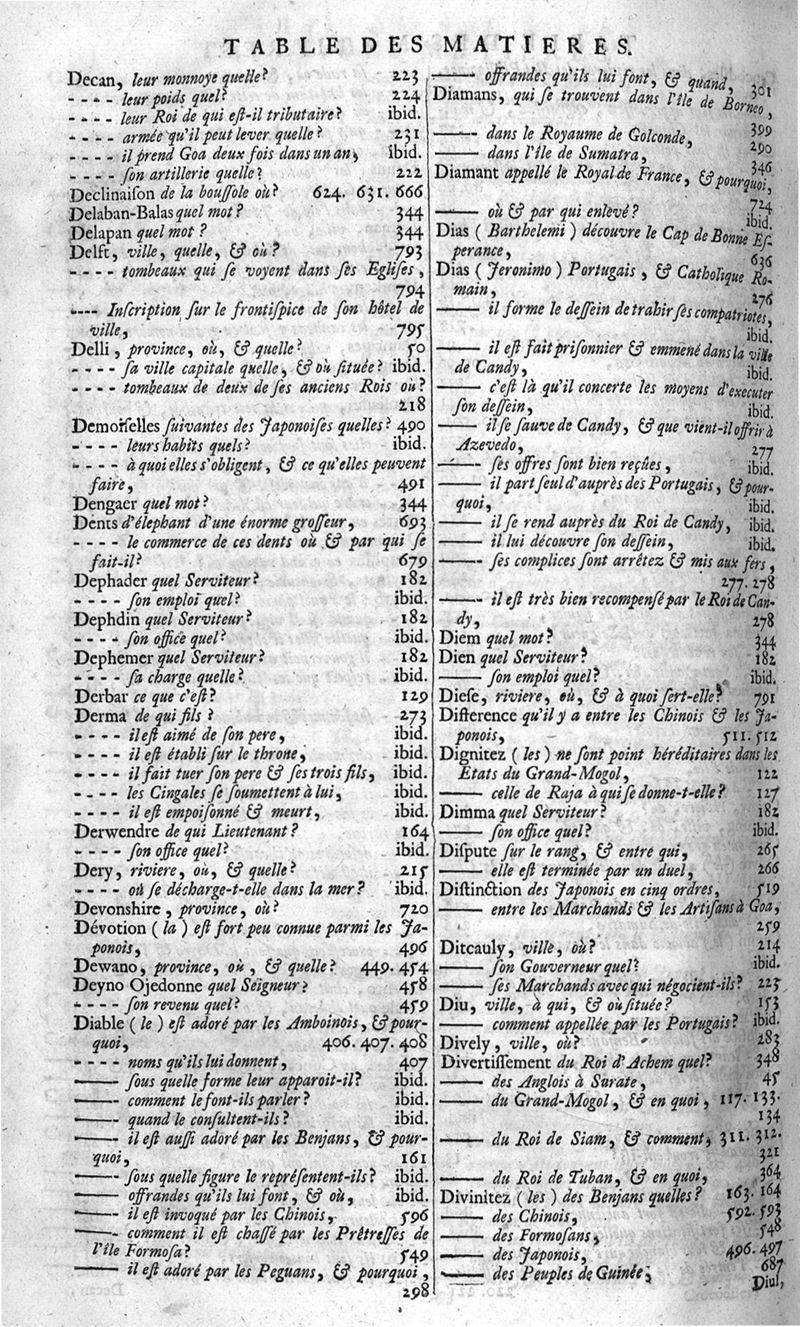 TABLE DES MATIERES.
Decan, leur monnoye quelle? 223
---- leur poids quel? 224
---- leur Roi de qui eſt-il tributaire? ibid.
---- armée qu'il peut lever quelle? 231
---- il prend Goa deux fois dans un an, ibid.
---- ſon artillerie quelle? 222
Declinaiſon de la bouſſole où? 624. 631. 666
Delaban-Balas quel mot? 344
Delapan quel mot? 344
Delft, ville, quelle, & où? 793
---- tombeaux qui ſe voyent dans ſes Egliſes,
794
---- Inſcription ſur le frontiſpice de ſon hôtel de
ville, 795
Delli, province, où, & quelle? 50
---- ſa ville capitale quelle, & où ſituée? ibid.
---- tombeaux de deux de ſes anciens Rois où?
218
Demoiſelles ſuivantes des Japonoiſes quelles? 490
---- leurs habits quels? ibid.
---- à quoi elles s'obligent, & ce qu'elles peuvent
faire, 491
Dengaer quel mot? 344
Dents d'élephant d'une énorme groſſeur, 693
---- le commerce de ces dents où & par qui ſe
fait-il? 679
Dephader quel Serviteur? 182
---- ſon emploi quel? ibid.
Dephdin quel Serviteur? 182
---- ſon office quel? ibid.
Dephemer quel Serviteur? 182
---- ſa charge quelle? ibid.
Derbar ce que c'eſt? 129
Derma de qui fils? 273
---- il eſt aimé de ſon pere, ibid.
---- il eſt établi ſur le throne, ibid.
---- il fait tuer ſon pere & ſes trois fils, ibid.
---- les Cingales ſe ſoumettent à lui, ibid.
---- il eſt empoiſonné & meurt, ibid.
Derwendre de qui Lieutenant? 164
---- ſon office quel? ibid.
Dery, riviere, où, & quelle? 215
---- où ſe décharge-t-elle dans la mer? ibid.
Devonshire, province, où? 720
Dévotion (la) eſt fort peu connue parmi les Ja-
ponois, 496
Dewano, province, où, & quelle? 449. 454
Deyno Ojedonne quel Seigneur? 458
---- ſon revenu quel? 459
Diable (le) eſt adoré par les Amboinois, & pour-
quoi, 406. 407. 408
---- noms qu'ils lui donnent, 407
—— ſous quelle forme leur apparoit-il? ibid.
—— comment le font-ils parler? ibid.
—— quand le conſultent-ils? ibid.
—— il eſt auſſi adoré par les Benjans, & pour-
quoi, 161
—— ſous quelle figure le repréſentent-ils? ibid.
—— offrandes qu'ils lui font, & où, ibid.
—— il eſt invoqué par les Chinois, 596
—— comment il eſt chaſſé par les Prêtreſſes de
l'île Formoſa? 549
—— il eſt adoré par les Peguans, & pourquoi,
298
—— offrandes qu'ils lui font, & quand, 301
Diamans, qui ſe trouvent dans l'île de Borneo,
399
—— dans le Royaume de Golconde, 290
—— dans l'île de Sumatra, 346
Diamant appellé le Royal de France, & pourquoi,
724
—— où & par qui enlevé? ibid.
Dias (Barthelemi) découvre le Cap de Bonne Eſ-
perance, 636
Dias (Jeronimo) Portugais, & Catholique Ro-
main, 276
—— il forme le deſſein de trahir ſes compatriotes,
ibid.
—— il eſt fait priſonnier & emmené dans la ville
de Candy, ibid.
—— c'eſt là qu'il concerte les moyens d'executer
ſon deſſein, ibid.
—— il ſe ſauve de Candy, & que vient-il offrir à
Azevedo, 277
—— ſes offres ſont bien reçûes, ibid.
—— il part ſeul d'auprès des Portugais, & pour-
quoi, ibid.
—— il ſe rend auprès du Roi de Candy, ibid.
—— il lui découvre ſon deſſein, ibid.
—— ſes complices ſont arrêtez & mis aux fers,
277. 278
—— il eſt très bien recompenſé par le Roi de Can-
dy, 278
Diem quel mot? 344
Dien quel Serviteur? 182
—— ſon emploi quel? ibid.
Dieſe, riviere, où, & à quoi ſert-elle? 791
Difference qu'il y a entre les Chinois & les Ja-
ponois, 511. 512
Dignitez (les) ne ſont point héréditaires dans les
Etats du Grand-Mogol, 122
—— celle de Raja à qui ſe donne-t-elle? 127
Dimma quel Serviteur? 182
—— ſon office quel? ibid.
Diſpute ſur le rang, & entre qui, 265
—— elle eſt terminée par un duel, 266
Diſtinction des Japonois en cinq ordres, 519
—— entre les Marchands & les Artiſans à Goa,
259
Ditcauly, ville, où? 214
—— ſon Gouverneur quel? ibid.
—— ſes Marchands avec qui négocient-ils? 223
Diu, ville, à qui, & où ſituée? 153
—— comment appellée par les Portugais? ibid.
Dively, ville, où? 283
Divertiſſement du Roi d'Achem quel? 348
—— des Anglois à Surate, 45
—— du Grand-Mogol, & en quoi, 117. 133.
134
—— du Roi de Siam, & comment, 311. 312.
321
—— du Roi de Tuban, & en quoi, 364
Divinitez (les) des Benjans quelles? 163. 164
—— des Chinois, 592. 593
—— des Formoſans, 548
—— des Japonois, 496. 497
—— des Peuples de Guinée, 687
Diul,